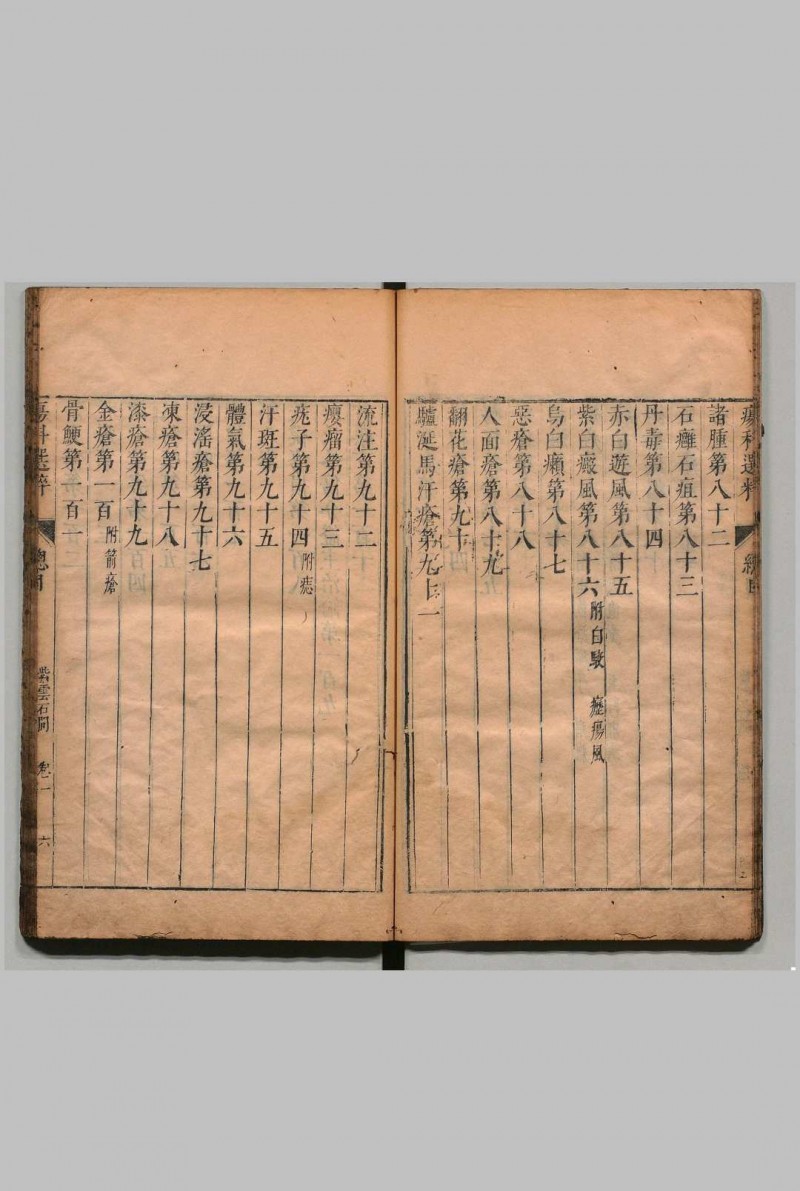 瘍科選粹
總目
諸腫第八十二
石癰石疽第八十三
丹毒第八十四
赤白遊風第八十五
紫白癜風第八十六 附白駁 癧瘍風
烏白癩第八十七
惡瘡第八十八
人面瘡第八十九
翻花瘡第九十
驢涎馬汗瘡第九十一
流注第九十二
癭瘤第九十三
疣子第九十四 附痣
汗斑第九十五
體氣第九十六
浸滛瘡第九十七
凍瘡第九十八
漆瘡第九十九
金瘡第一百 附箭瘡
骨鯁第一百一
瘍科選粹
總目
紫雲石間
卷一
六